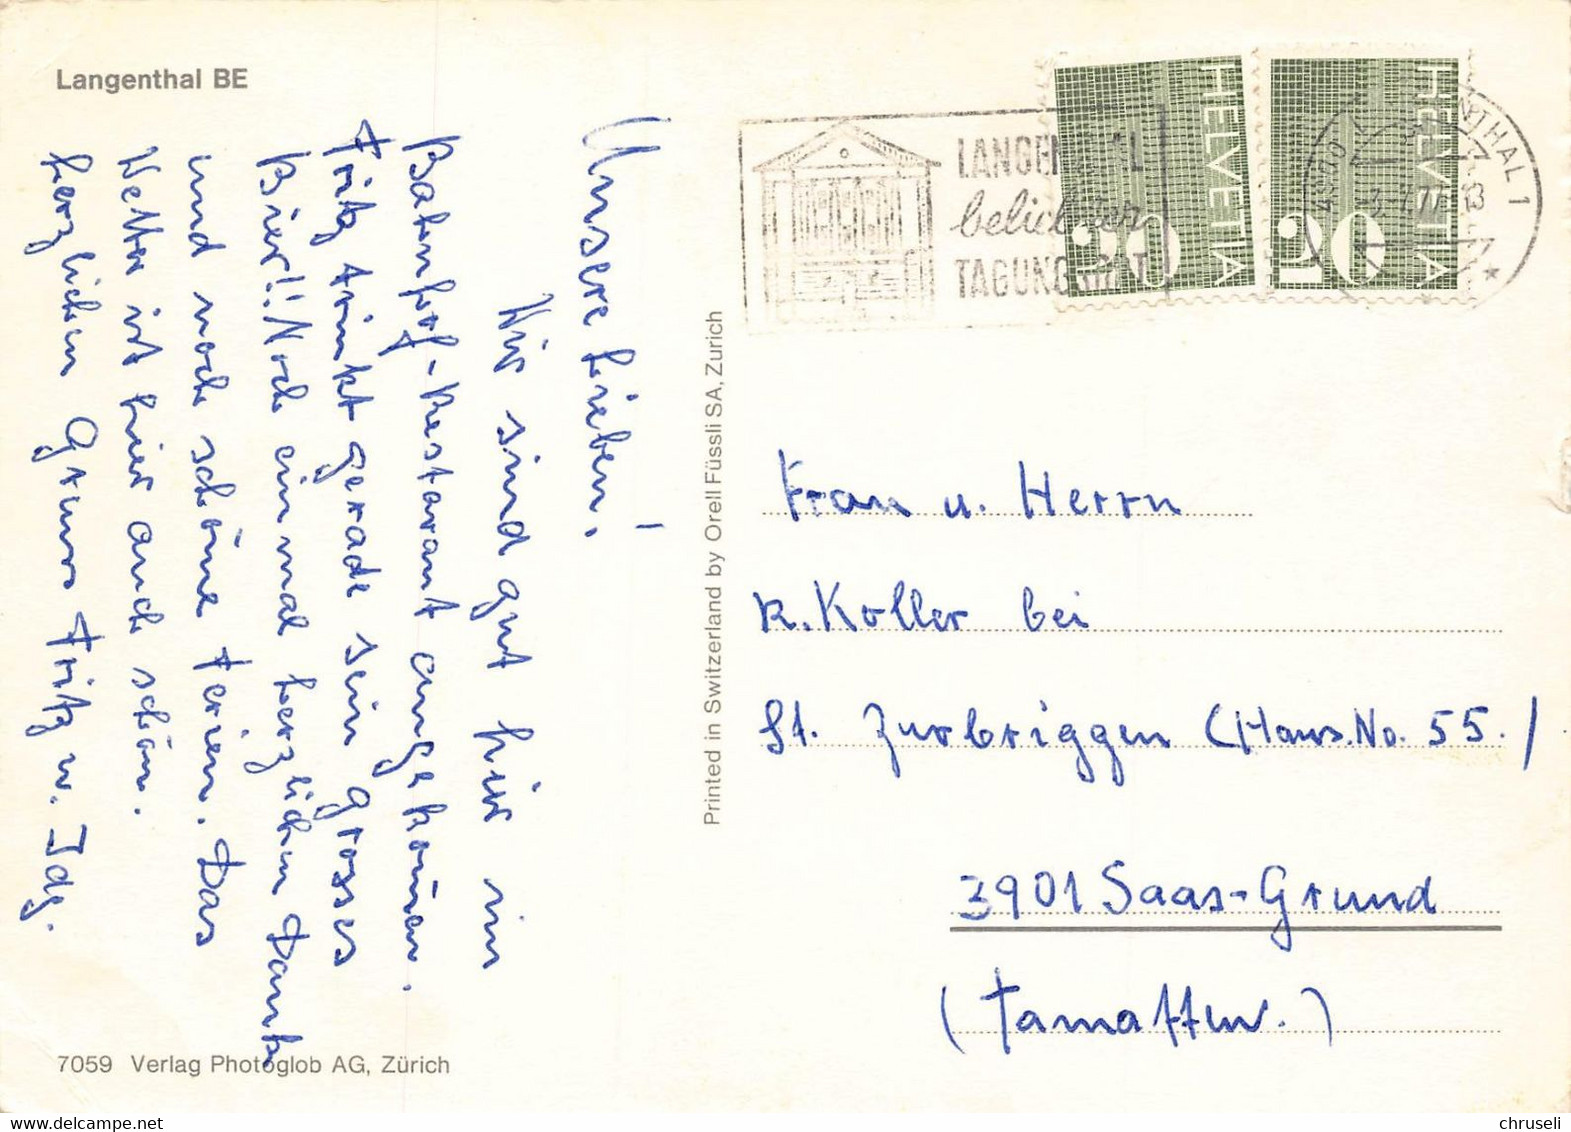 Langenthal BE
Unsere Lieben!
Wir sind gut hier im
Bahnhof-Restarant angekom̄en.
Fritz trinkt gerade sein grosses
Bier!! Noch einmal herzlichen Dank
und noch schöne Ferien. Das
Wetter ist hier auch schön.
herzlichen Gruss Fritz u. Idy.
7059 Verlag Photoglob AG, Zürich
Printed in Switzerland by Orell Füssli SA, Zurich
LANGENTHAL
beliebter
TAGUNGSORT
HELVETIA
10
HELVETIA
10
4900 LANGENTHAL 1
77 13
Frau u. Herrn
R. Koller bei
St. Zurbriggen (Haus.No. 55.)
3901 Saas-Grund
(Tamatten.)
chruseli